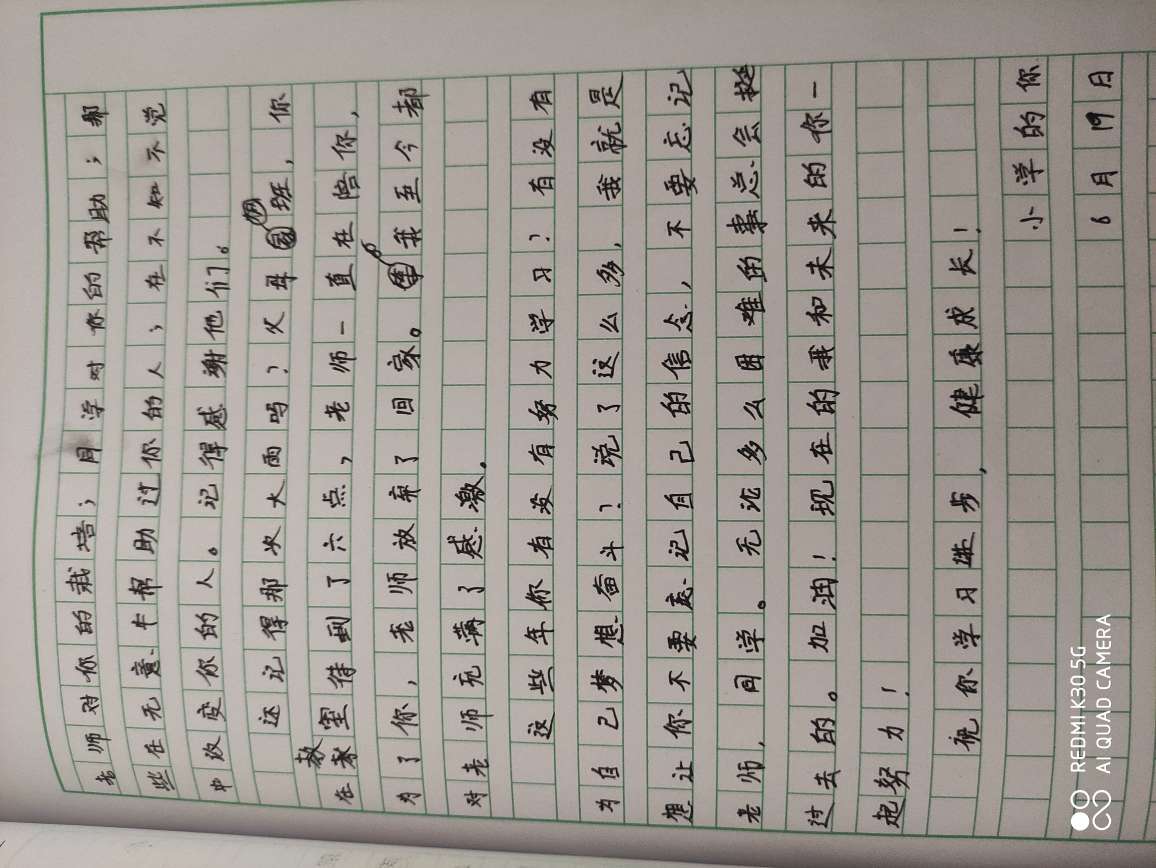 老师对你的栽培；同学对你的帮助；那
些在无意中帮助过你的人；在不知不觉
中改变你的人。记得感谢他们。
还记得那次大雨吗？父母加班，你
在教室待到了六点，老师一直在陪你，
为了你，老师放弃了回家。我至今都
对老师充满了感激。
这些年你有没有努力学习？有没有
为自己梦想奋斗？说了这么多，我就是
想让你不要忘记自己的信念，不要忘记
老师，同学。无论多么困难的事总会挺
过去的。加油！现在的我和未来的你一
起努力！
祝你学习进步，健康成长！
小学的你
6月19日
REDMI K30 5G
AI QUAD CAMERA